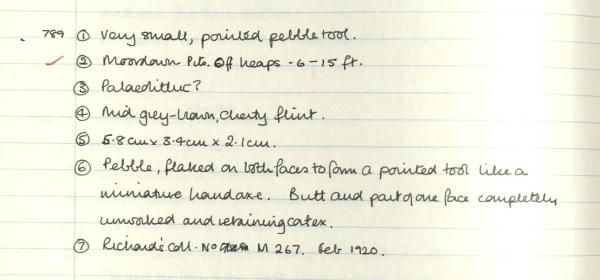 789 ① Very small, pointed pebble tool.
② Moordown Pits. Off heaps - 6-15 ft.
③ Palaeolithic?
④ Mid grey-brown, cherty flint.
⑤ 5.8cm x 3.4cm x 2.1cm.
⑥ Pebble, flaked on both faces to form a pointed tool like a
miniature handaxe. Butt and part of one face completely
unworked and retaining cortex.
⑦ Richard's Coll. No M 267. Feb 1920.